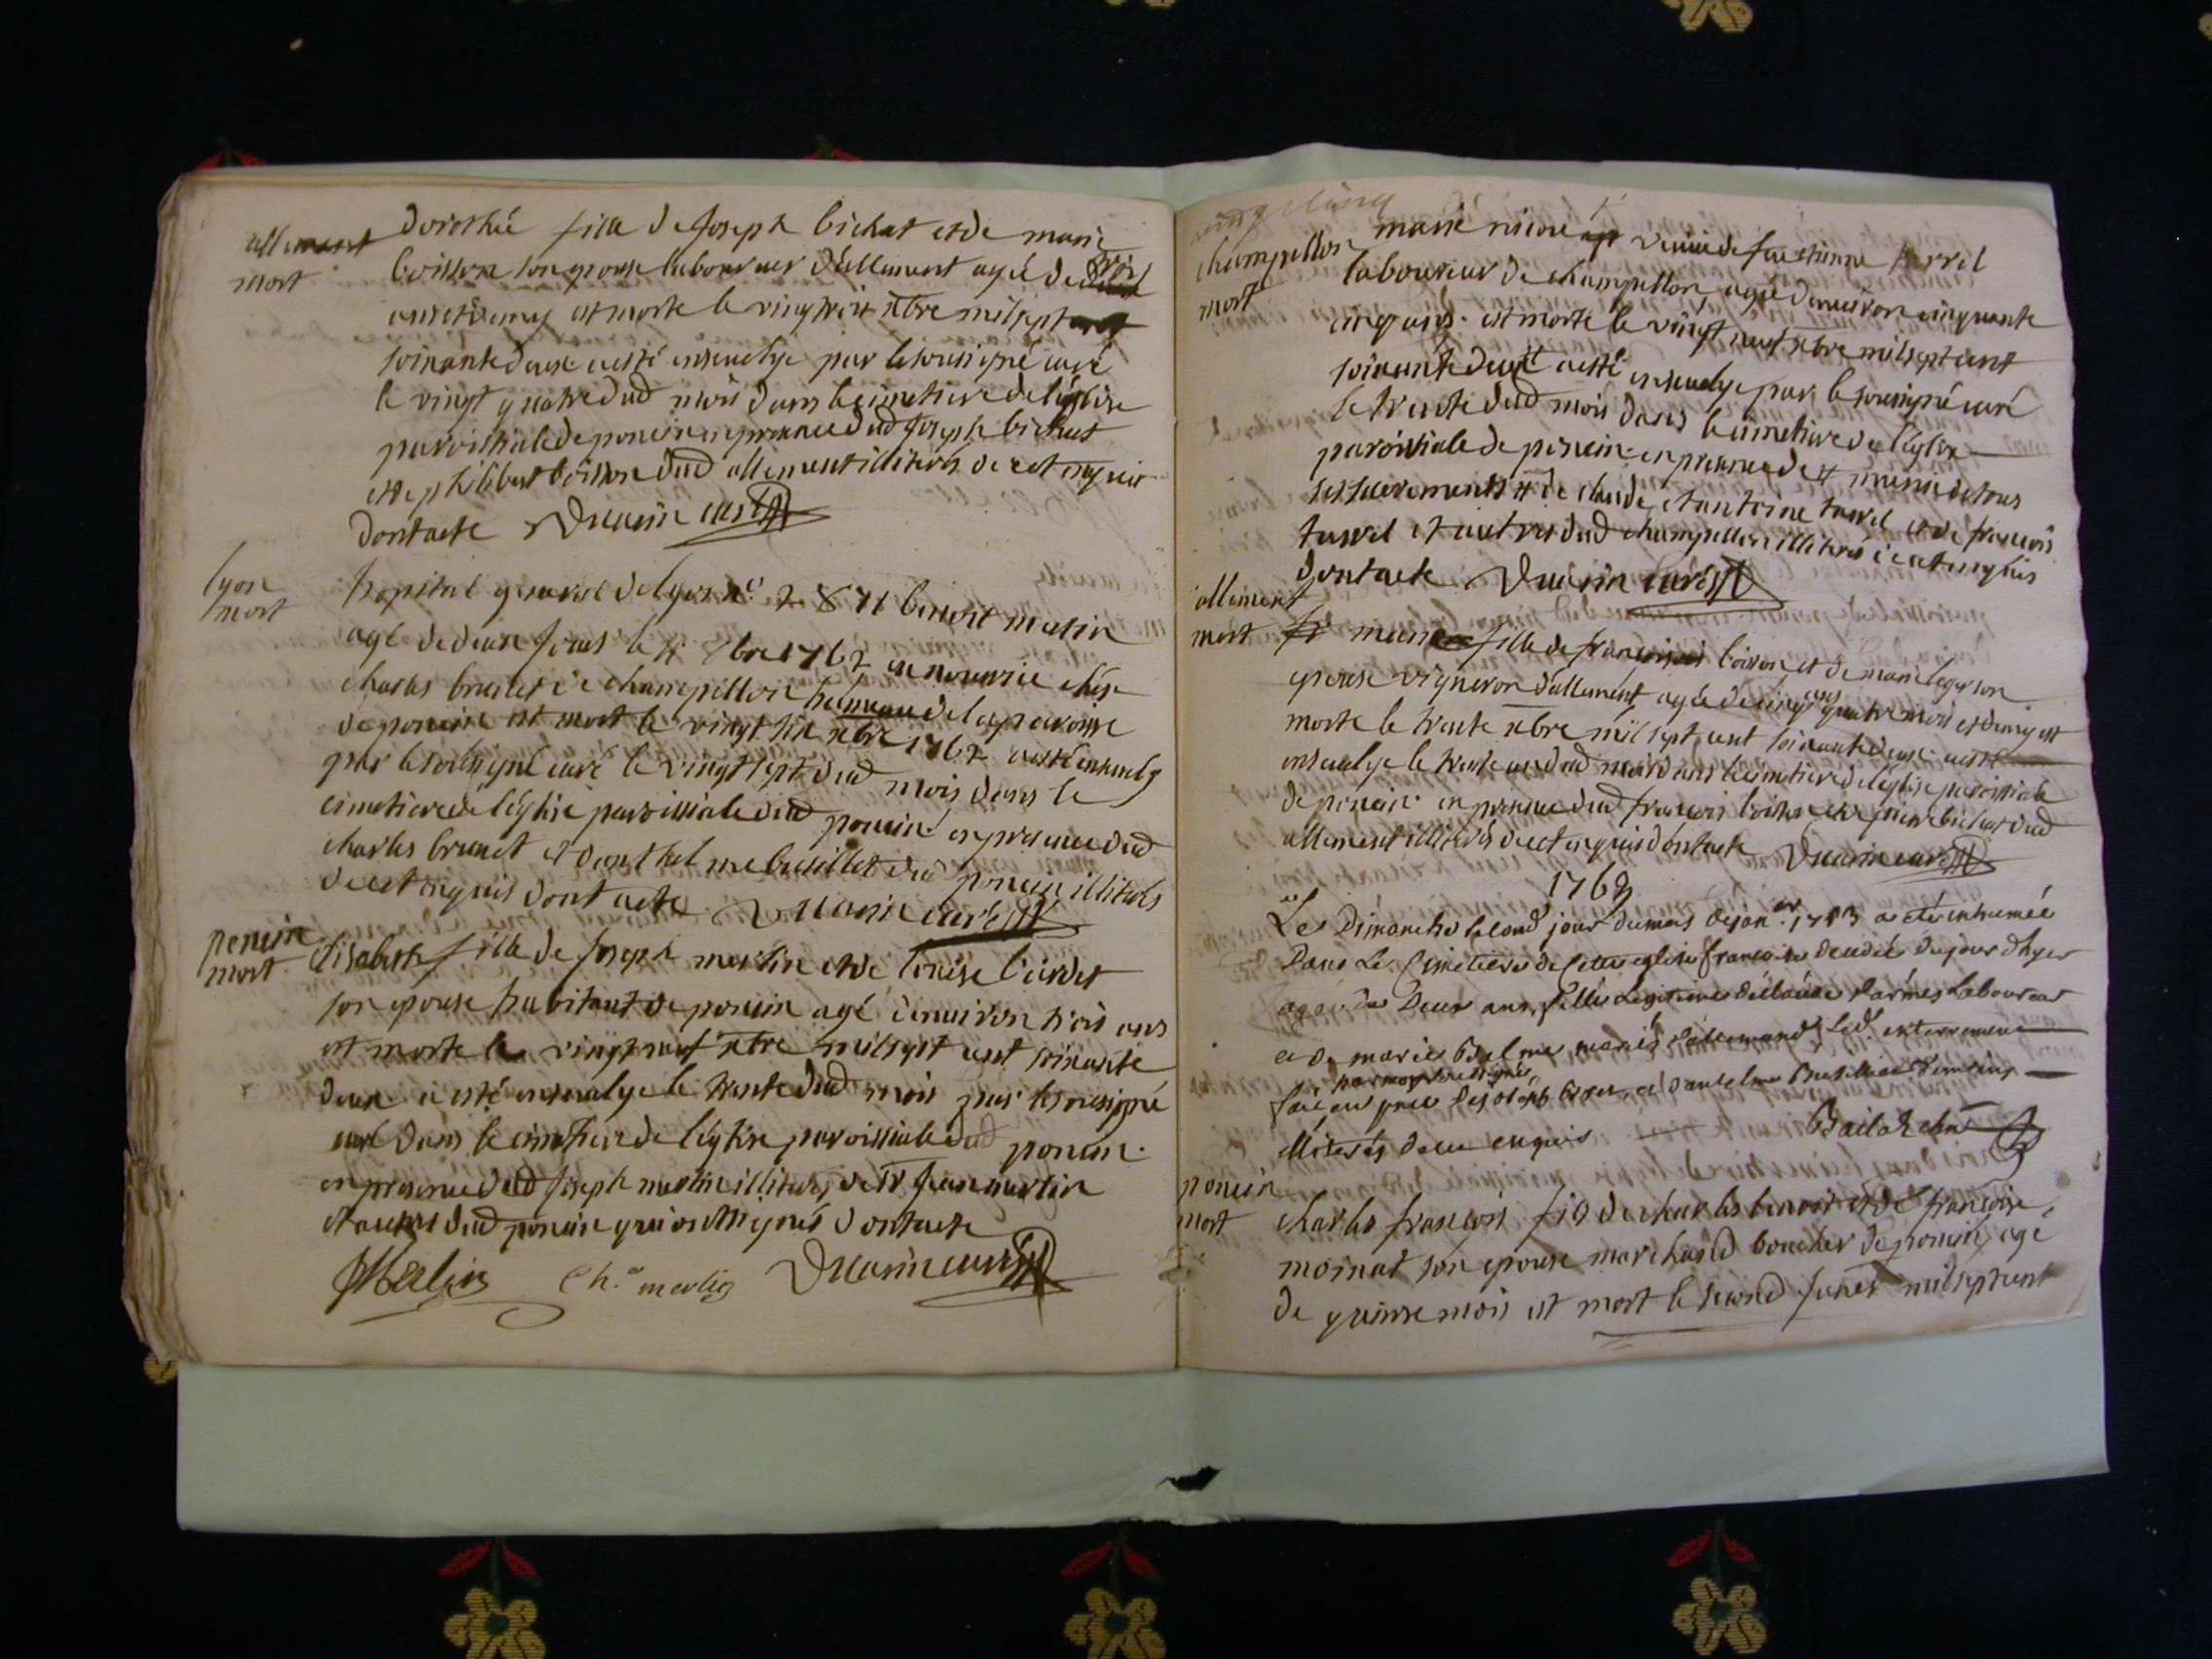 allement
mort
dorothée fille de Joseph bichat et de marie
boisson son epouse laboureur d'allement agée de trois
ans et demy est morte le vingt trois xbre mil sept cent
soixante deux a esté ensevelye par le soussigné curé
le vingt quatre dud mois dans le cimetiere de l'église
paroissiale de poncin en presence dud Joseph bichat
et de philibert boisson dud allement illiterés de ce enquis
dont acte Duarin curé
lyon
mort
hopital general de lyon n° 2871 benoit
agé de deux jours le 7bre 1762 en nourrice chés
charles brunet de champillon hameau de la paroisse
de poncin est mort le vingt six xbre 1762 a esté ensevely
par le soussigné curé le vingt sept dud mois dans le
cimetiere de l'église paroissiale dud poncin en presence dud
charles brunet et d'anthelme buaillet dud poncin illiterés
de ce enquis dont acte Duarin curé
poncin
mort
Elisabeth fille de Joseph merlin et de louise
son epouse habitant de poncin agé d'environ trois ans
est morte le vingt neuf xbre mil sept cent soixante
deux a esté ensevelye le trente dud mois par le soussigné
curé dans le cimetiere de l'église paroissiale dud poncin.
en presence dud Joseph merlin illiteré, de sr Jean merlin
et autres dud poncin qui ont signés dont acte
JMerlin Ch. merlin Duarin curé
champillon
mort
marie veuve de feu etienne
laboureur de champillon, agée d'environ cinquante
cinq ans est morte le vingt neuf xbre mil sept cent
soixante deux a esté ensevelye par le soussigné curé
le trente dud mois dans le cimetiere de l'église
paroissiale de poncin en presence de # munie de tous
ses sacrements # de claude, et antoine tarrel et de françois
tarrel et autres dud champillon illiterés de ce enquis
dont acte Duarin curé
allement
mort
marie fille de françois boisson et de marie leger son
epouse vigneron d'allement agée de cinq ans quatre mois et demy est
morte le trente xbre mil sept cent soixante deux a esté
ensevelye le trente un dud mois dans le cimetiere de l'église paroissiale
de poncin en presence dud françois boisson et de pierre bichat dud
allement illiterés de ce enquis dont acte Duarin curé
1763
Le Dimanche second jour du mois de janer 1763 a été inhumée
Dans Le Cimetiere de cette eglise françoise decedée du jour d'hyer
agée de Deux ans, fille Legitime de claude Laboureur
et de marie Balme mariés d'allemand, Led. enterrement
par moy soussigné,
fait en pnce de Joseph et d'antelme
illiterés de ce enquis
poncin
mort
charles françois fils de charles benoit et de françoise
moinat son epouse marchand boucher de poncin, agé
de quinze mois est mort le second janer mil sept cent